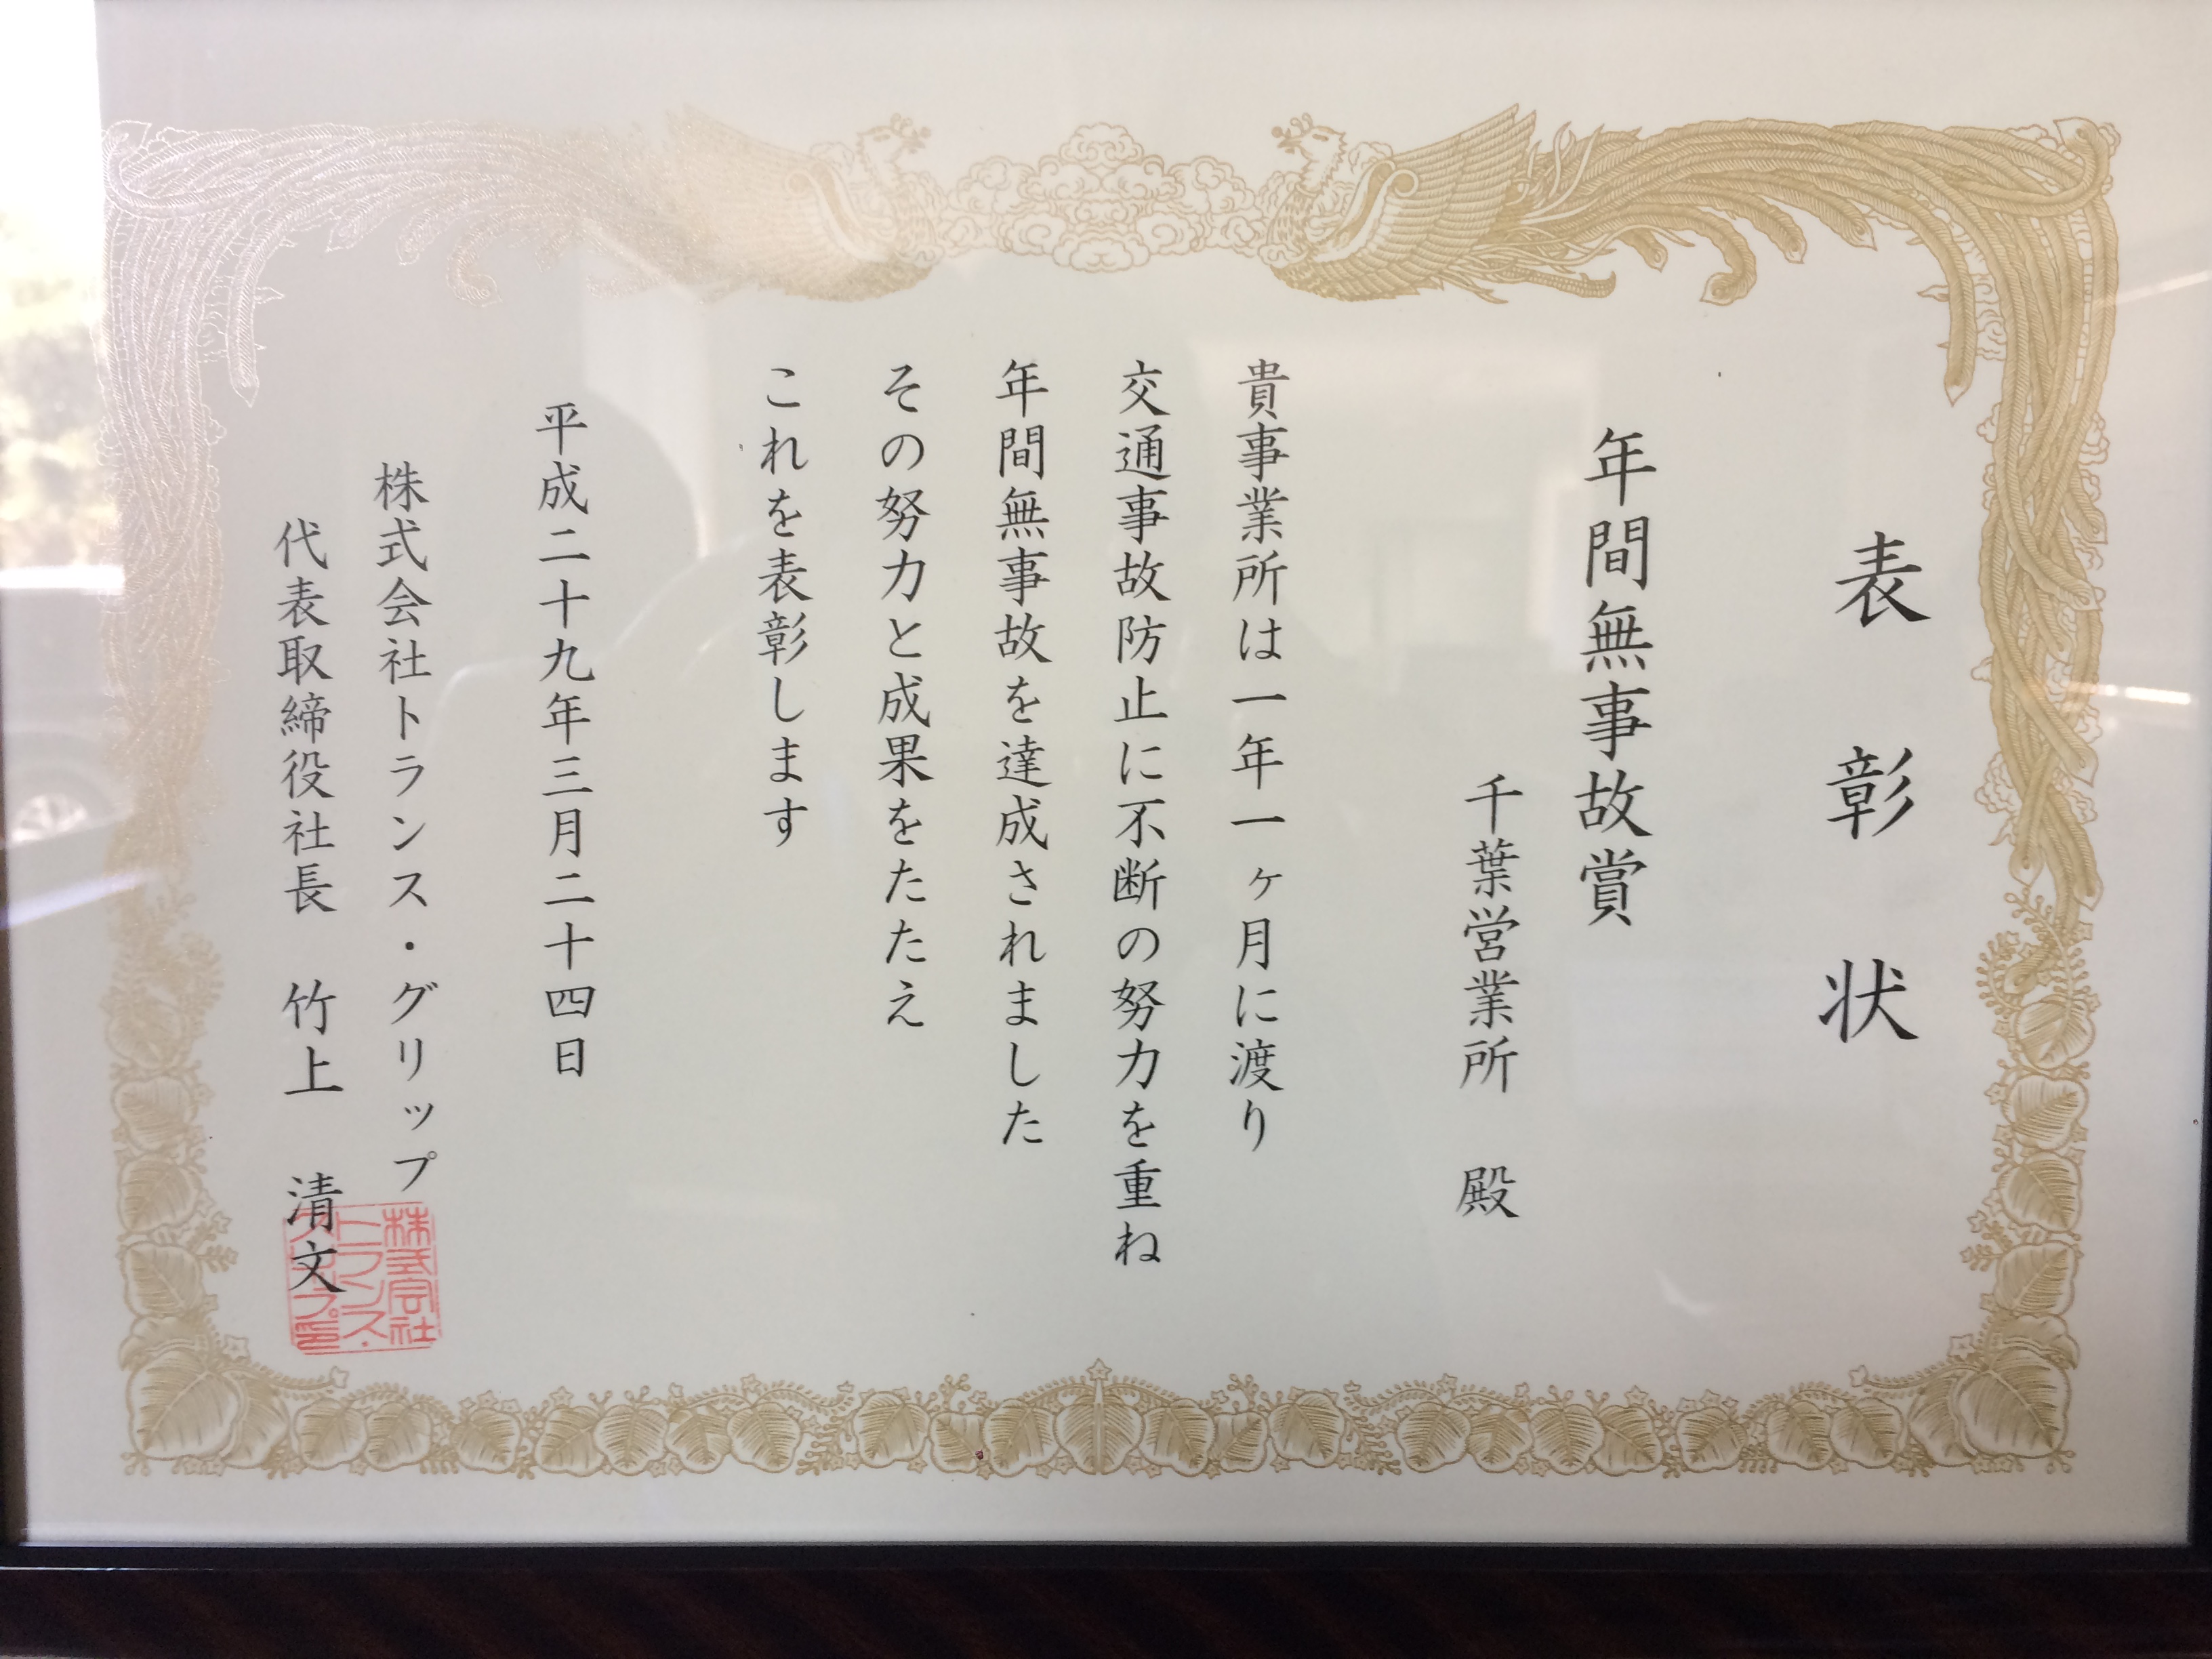 表彰状
年間無事故賞
千葉営業所　殿
貴事業所は一年一ヶ月に渡り
交通事故防止に不断の努力を重ね
年間無事故を達成されました
その努力と成果をたたえ
これを表彰します
平成二十九年三月二十四日
株式会社トランス・グリップ
代表取締役社長　竹上　清文
株式会社
トランス・